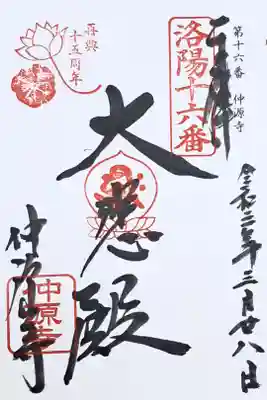 第十六番 仲源寺
洛陽十六番
再興
十五周年
奉拝
大悲殿
令和二年三月廿八日
仲源寺
中原寺